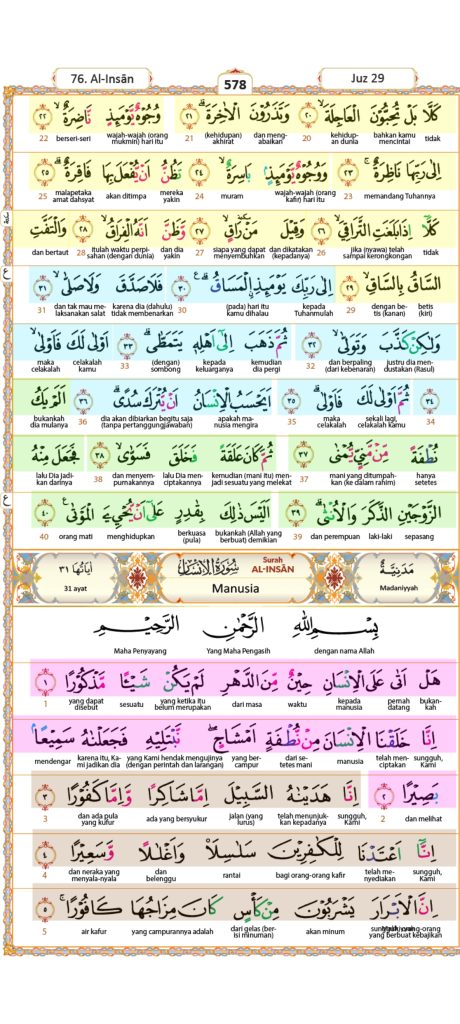 76. Al-Insān
578
Juz 29
كَلَّا بَلْ تُحِبُّوْنَ الْعَاجِلَةَۙ ٢٠ وَتَذَرُوْنَ الْاٰخِرَةَۗ ٢١ وُجُوْهٌ يَّوْمَىِٕذٍ نَّاضِرَةٌۙ ٢٢
tidak bahkan kamu mencintai kehidupan dunia 20 dan mengabaikan (kehidupan) akhirat 21 wajah-wajah (orang mukmin) hari itu berseri-seri 22
اِلٰى رَبِّهَا نَاظِرَةٌۚ ٢٣ وَوُجُوْهٌ يَّوْمَىِٕذٍۢ بَاسِرَةٌۙ ٢٤ تَظُنُّ اَنْ يُّفْعَلَ بِهَا فَاقِرَةٌۗ ٢٥
memandang Tuhannya 23 wajah-wajah (orang kafir) hari itu muram 24 mereka yakin akan ditimpa malapetaka amat dahsyat 25
كَلَّآ اِذَا بَلَغَتِ التَّرَاقِيَۙ ٢٦ وَقِيْلَ مَنْ ۜ رَاقٍۙ ٢٧ وَّظَنَّ اَنَّهُ الْفِرَاقُۙ ٢٨ وَالْتَفَّتِ
tidak jika (nyawa) telah sampai kerongkongan 26 dan dikatakan (kepadanya) siapa yang dapat menyembuhkan 27 dan dia yakin itulah waktu perpisahan (dengan dunia) 28 dan bertaut
السَّاقُ بِالسَّاقِۙ ٢٩ اِلٰى رَبِّكَ يَوْمَىِٕذِ ۨالْمَسَاقُ ۗ ٣٠ فَلَا صَدَّقَ وَلَا صَلّٰىۙ ٣١
betis (kiri) dengan betis (kanan) 29 kepada Tuhanmulah (pada) hari itu kamu dihalau 30 karena dia (dahulu) tidak membenarkan dan tak mau melaksanakan salat 31
وَلٰكِنْ كَذَّبَ وَتَوَلّٰىۙ ٣٢ ثُمَّ ذَهَبَ اِلٰٓى اَهْلِهٖ يَتَمَطّٰىۗ ٣٣ اَوْلٰى لَكَ فَاَوْلٰىۙ
justru dia mendustakan (Rasul) dan berpaling (dari kebenaran) 32 kemudian dia pergi kepada keluarganya (dengan) sombong 33 celakalah kamu maka celakalah
٣٤ ثُمَّ اَوْلٰى لَكَ فَاَوْلٰىۗ ٣٥ اَيَحْسَبُ الْاِنْسَانُ اَنْ يُّتْرَكَ سُدًىۗ ٣٦ اَلَمْ يَكُ
34 sekali lagi, celakalah kamu maka celakalah 35 apakah manusia mengira dia akan dibiarkan begitu saja (tanpa pertanggungjawaban) 36 bukankah dia mulanya
نُطْفَةً مِّنْ مَّنِيٍّ يُّمْنٰى ٣٧ ثُمَّ كَانَ عَلَقَةً فَخَلَقَ فَسَوّٰىۙ ٣٨ فَجَعَلَ مِنْهُ
hanya setetes mani yang ditumpahkan (ke dalam rahim) 37 kemudian (mani itu) menjadi sesuatu yang melekat lalu Dia menciptakannya dan menyempurnakannya 38 lalu Dia jadikan darinya
الزَّوْجَيْنِ الذَّكَرَ وَالْاُنْثٰىۗ ٣٩ اَلَيْسَ ذٰلِكَ بِقٰدِرٍ عَلٰٓى اَنْ يُّحْيِۦَ الْمَوْتٰى ࣖ ٤٠
sepasang laki-laki dan perempuan 39 bukankah (Allah yang berbuat) demikian berkuasa (pula) menghidupkan orang mati 40
مَدَنِيَّةٌ سُوْرَةُ الْاِنْسَانِ اٰيَاتُهَا ٣١
Madaniyyah Surah AL-INSĀN Manusia 31 ayat
بِسْمِ اللّٰهِ الرَّحْمٰنِ الرَّحِيْمِ
dengan nama Allah Yang Maha Pengasih Maha Penyayang
هَلْ اَتٰى عَلَى الْاِنْسَانِ حِيْنٌ مِّنَ الدَّهْرِ لَمْ يَكُنْ شَيْـًٔا مَّذْكُوْرًا ١
bukankah pernah datang kepada manusia waktu dari masa yang ketika itu belum merupakan sesuatu yang dapat disebut 1
اِنَّا خَلَقْنَا الْاِنْسَانَ مِنْ نُّطْفَةٍ اَمْشَاجٍۖ نَّبْتَلِيْهِ فَجَعَلْنٰهُ سَمِيْعًاۢ
sungguh, Kami telah menciptakan manusia dari setetes mani yang bercampur yang Kami hendak mengujinya (dengan perintah dan larangan) karena itu, Kami jadikan dia mendengar
بَصِيْرًا ٢ اِنَّا هَدَيْنٰهُ السَّبِيْلَ اِمَّا شَاكِرًا وَّاِمَّا كَفُوْرًا ٣
dan melihat 2 sungguh, Kami telah menunjukkan kepadanya jalan (yang lurus) ada yang bersyukur dan ada pula yang kufur 3
اِنَّآ اَعْتَدْنَا لِلْكٰفِرِيْنَ سَلٰسِلَا۟ وَاَغْلٰلًا وَّسَعِيْرًا ٤
sungguh, Kami telah menyediakan bagi orang-orang kafir rantai dan belenggu dan neraka yang menyala-nyala 4
اِنَّ الْاَبْرَارَ يَشْرَبُوْنَ مِنْ كَأْسٍ كَانَ مِزَاجُهَا كَافُوْرًاۚ ٥
yang berbuat kebajikan akan minum dari gelas (berisi minuman) yang campurannya adalah air kafur 5